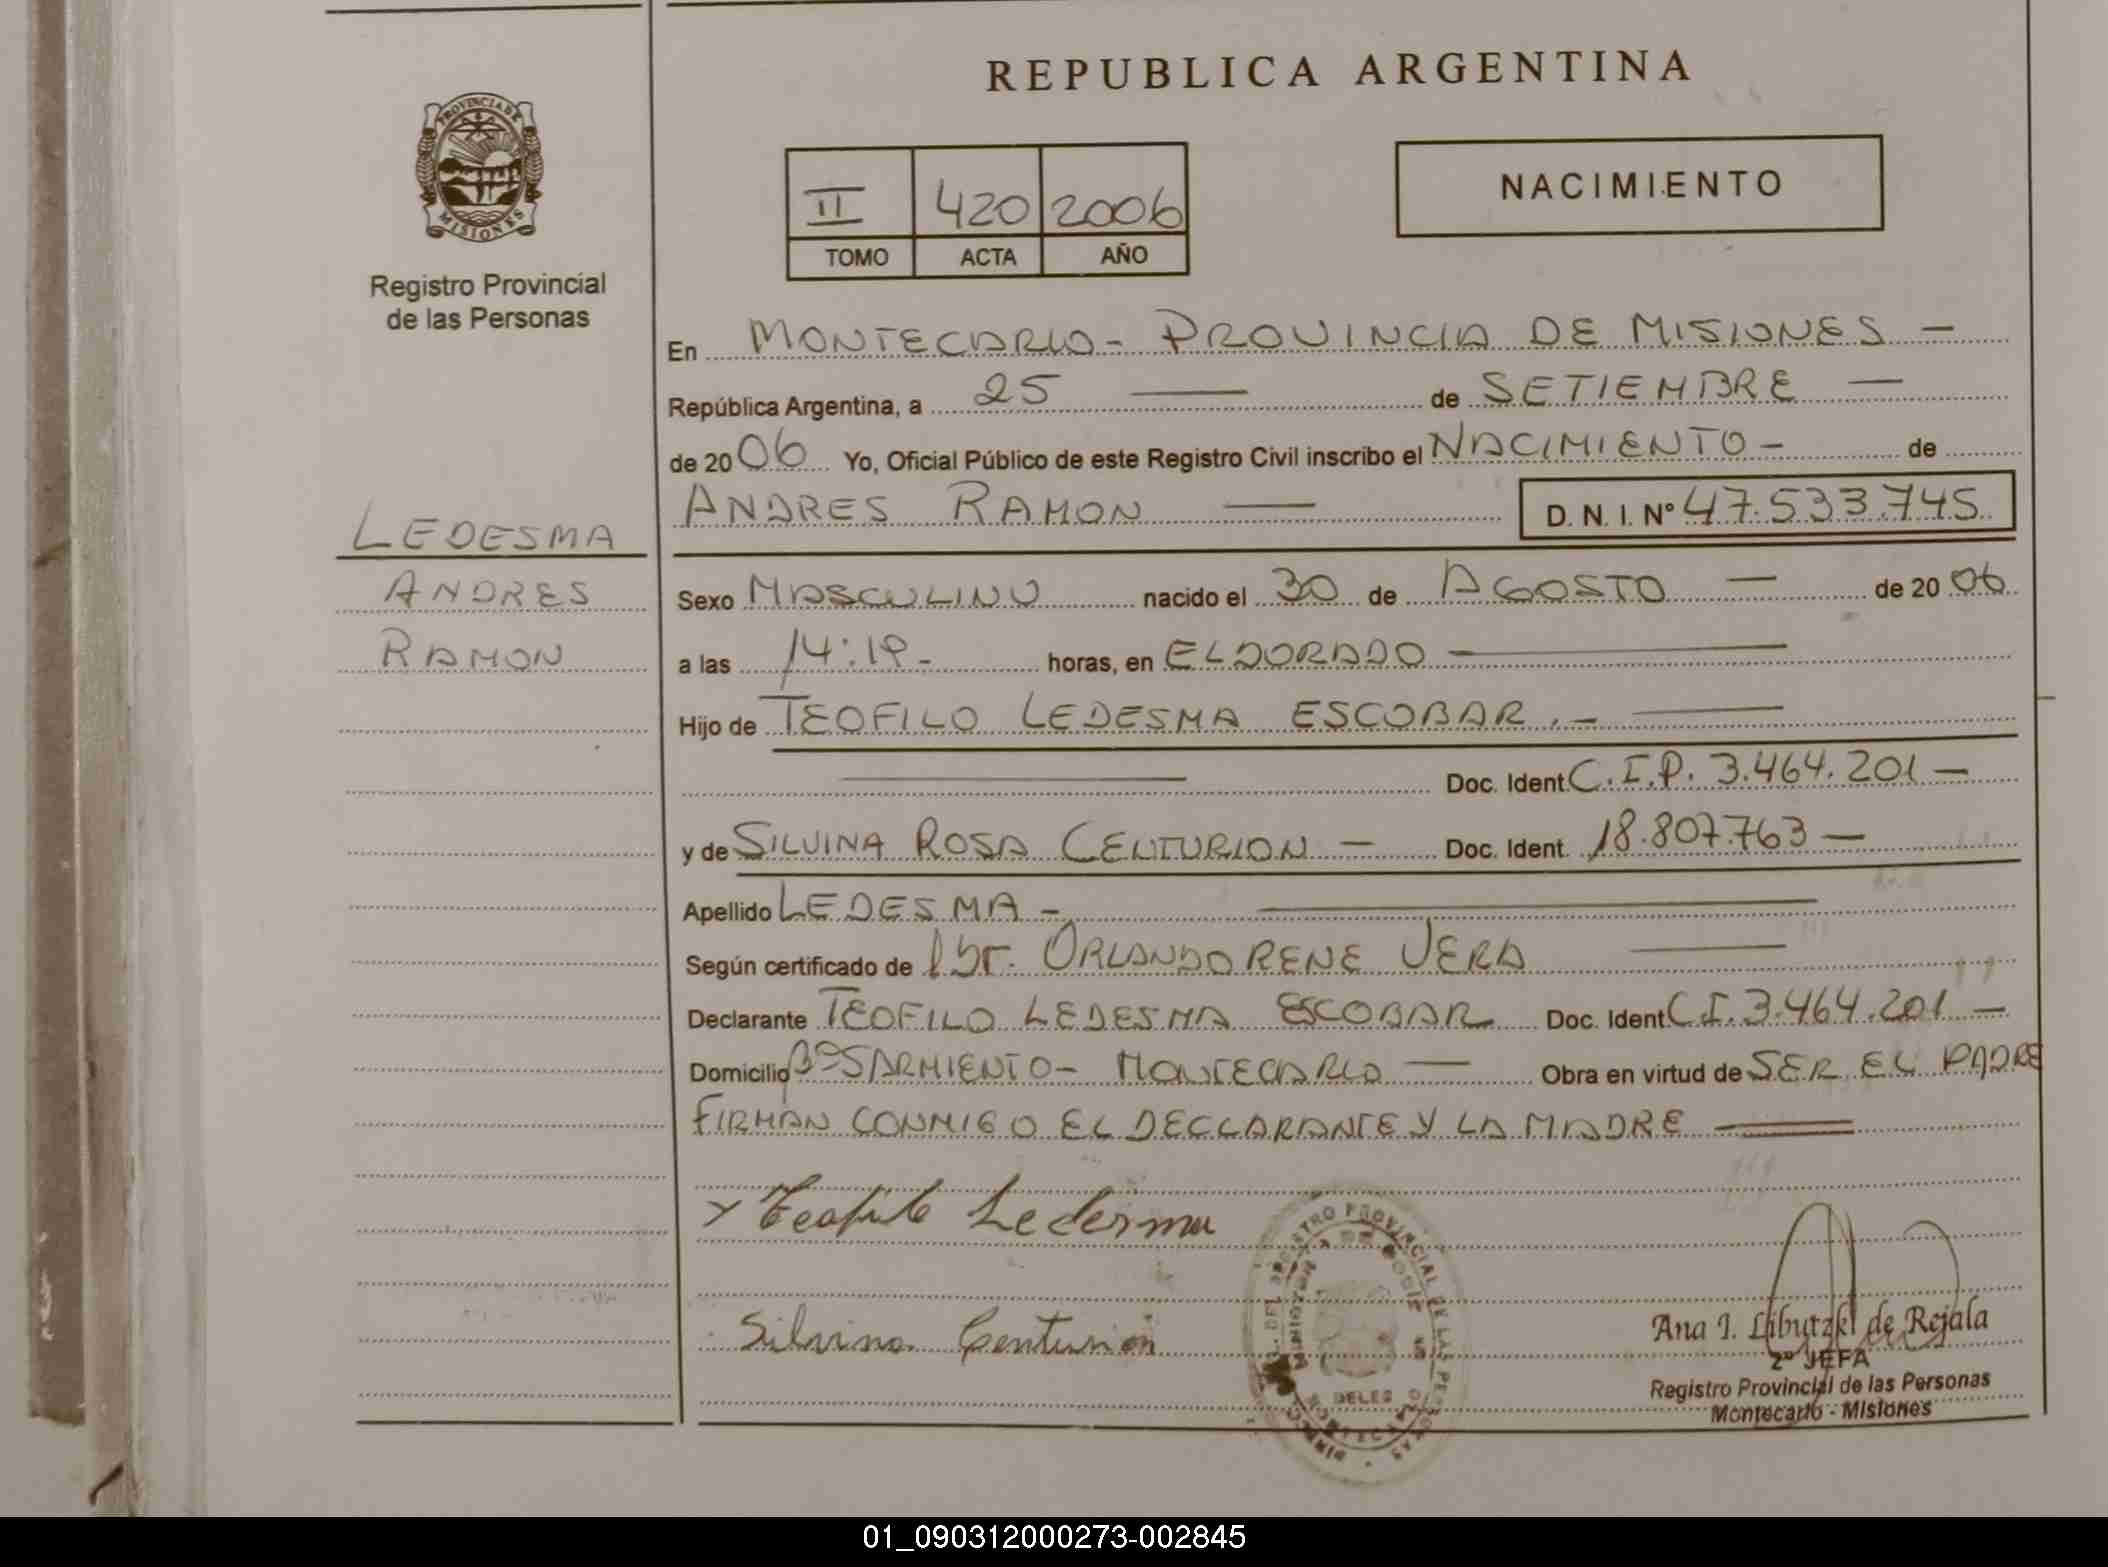 REPUBLICA ARGENTINA
PROVINCIA DE MISIONES
Registro Provincial
de las Personas
II 420 2006
TOMO ACTA AÑO
NACIMIENTO
En MONTECARLO - PROVINCIA DE MISIONES -
República Argentina, a 25 de SETIEMBRE
de 2006 Yo, Oficial Público de este Registro Civil inscribo el NACIMIENTO - de
LEDESMA
ANDRES RAMON D. N. I. Nº 47.533.745
ANDRES
Sexo MASCULINO nacido el 30 de AGOSTO de 2006
RAMON
a las 14:19 - horas, en ELDORADO
Hijo de TEOFILO LEDESMA ESCOBAR . -
Doc. Ident. C.I.P. 3.464.201 -
y de SILVINA ROSA CENTURION - Doc. Ident. 18.807.763 -
Apellido LEDESMA -
Según certificado de ORLANDO RENE VERA
Declarante TEOFILO LEDESMA ESCOBAR Doc. Ident C.I. 3.464.201 -
Domicilio Bº SARMIENTO - MONTECARLO - Obra en virtud de SER EL PADRE
FIRMAN CONMIGO EL DECLARANTE Y LA MADRE
x Teofilo Ledesma
Silvina Centurion
REGISTRO PROVINCIAL DE LAS PERSONAS
Ana I. Libutzki de Rejala
2º JEFA
Registro Provincial de las Personas
Montecarlo - Misiones
01_090312000273-002845